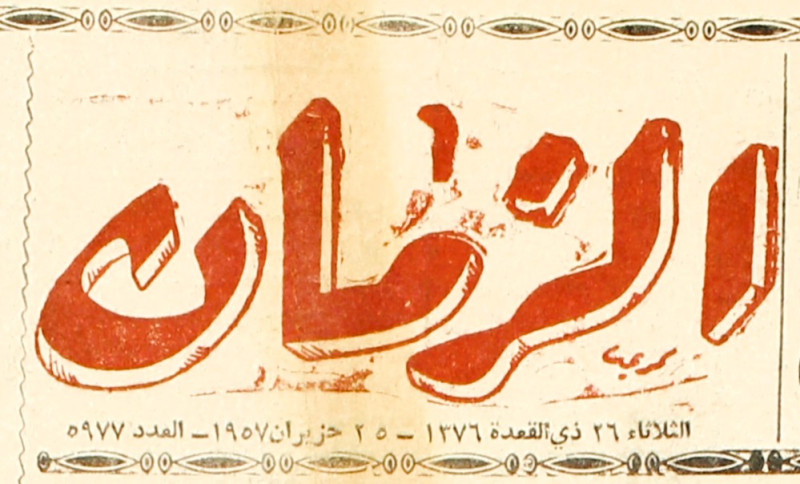 الزمان
الثلاثاء ٢٦ ذي القعدة ١٣٧٦ – ٢٥ حزيران ١٩٥٧ – العدد ٥٩٧٧